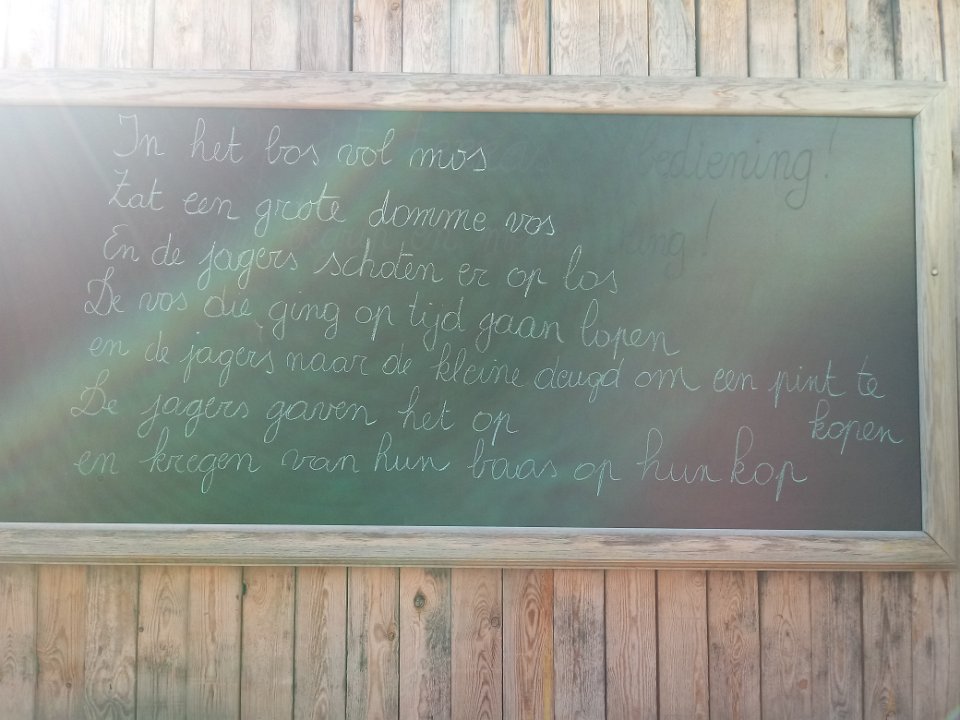 In het bos vol mos
Zat een grote domme vos
En de jagers schoten er op los
De vos die ging op tijd gaan lopen
en de jagers naar de kleine deugd om een pint te
kopen
De jagers gaven het op
en kregen van hun baas op hun kop
bediening!